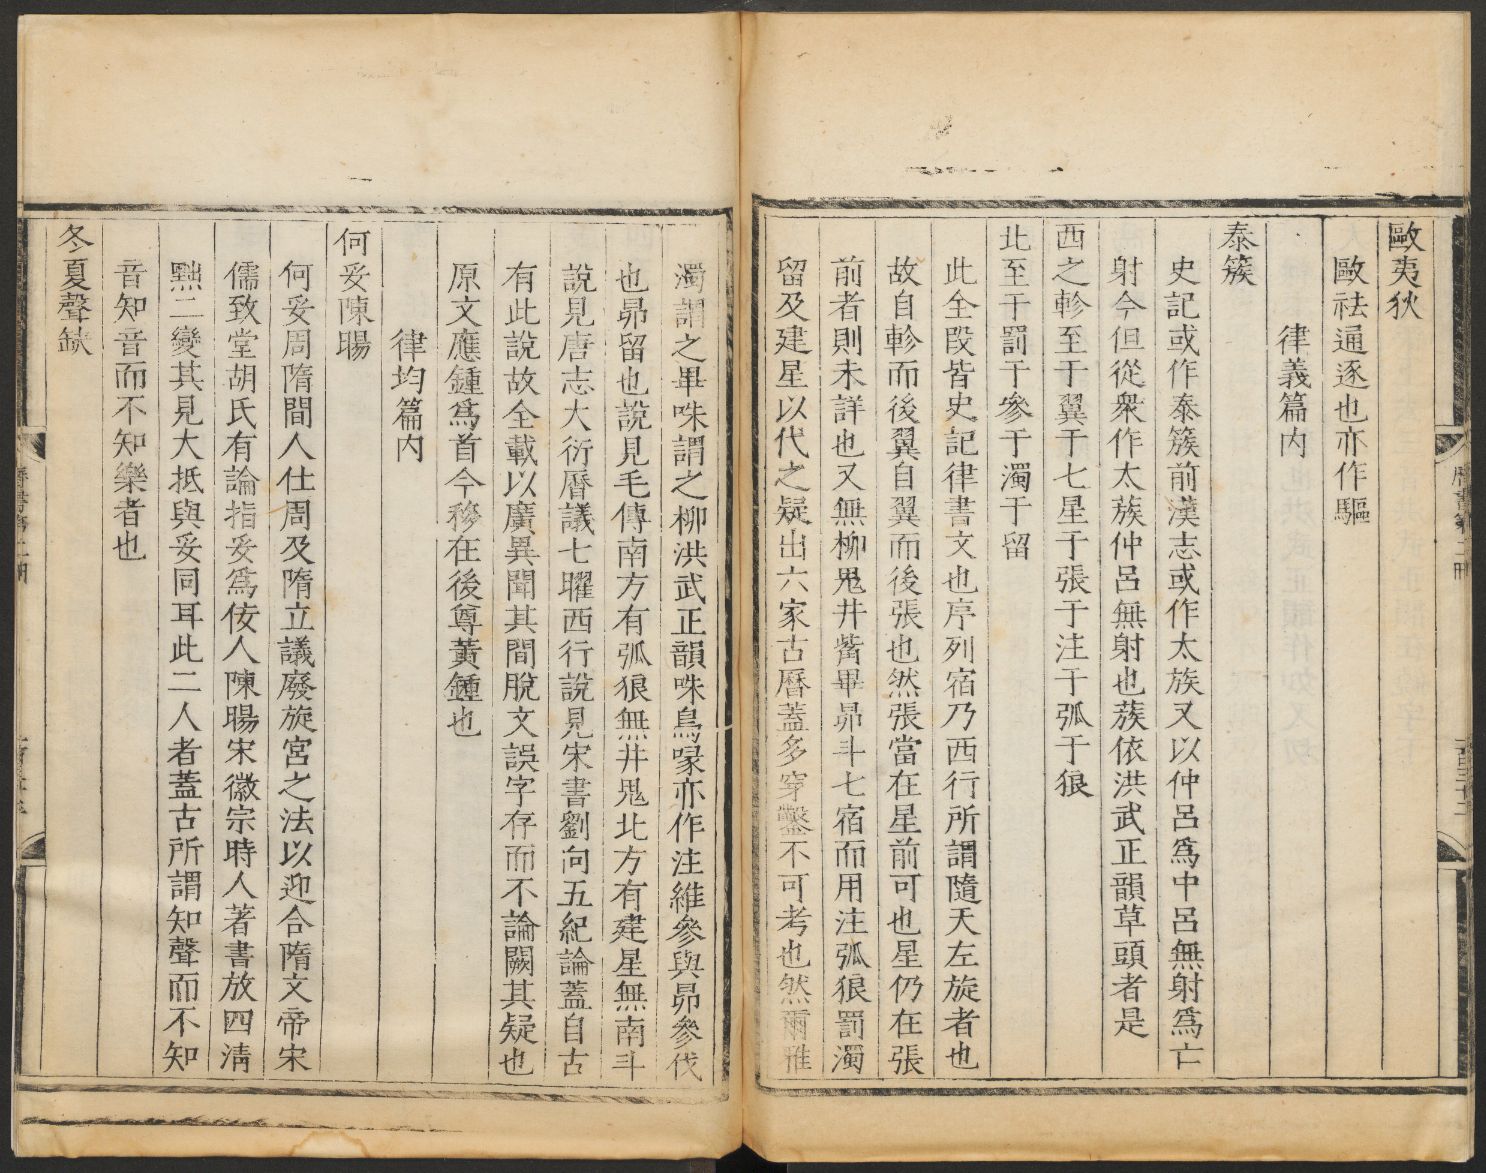 歐夷狄
歐祛通逐也亦作驅
律義篇内
泰簇
史記或作泰簇前漢志或作太族又以仲呂爲中呂無射爲亡
射今但從衆作太蔟仲呂無射也蔟依洪武正韻草頭者是
西之軫至于翼于七星于張于注于弧于狼
北至于罰于參于濁于留
此全段皆史記律書文也序列宿乃西行所謂隨天左旋者也
故自軫而後翼自翼而後張也然張當在星前可也星仍在張
前者則未詳也又無柳鬼井觜畢昴斗七宿而用注弧狼罰濁
留及建星以代之疑出六家古曆蓋多穿鑿不可考也然爾雅
濁謂之畢咮謂之柳洪武正韻咮鳥喙亦作注維參與昴參伐
也昴留也說見毛傳南方有弧狼無井鬼北方有建星無南斗
說見唐志大衍曆議七曜西行說見宋書劉向五紀論蓋自古
有此說故全載以廣異聞其間脫文誤字存而不論闕其疑也
原文應鍾爲首今移在後尊黃鍾也
律均篇内
何妥陳暘
何妥周隋間人仕周及隋立議廢旋宮之法以迎合隋文帝宋
儒致堂胡氏有論指妥爲佞人陳暘宋徽宗時人著書放四淸
黜二變其見大抵與妥同耳此二人者蓋古所謂知聲而不知
音知音而不知樂者也
冬夏聲缺